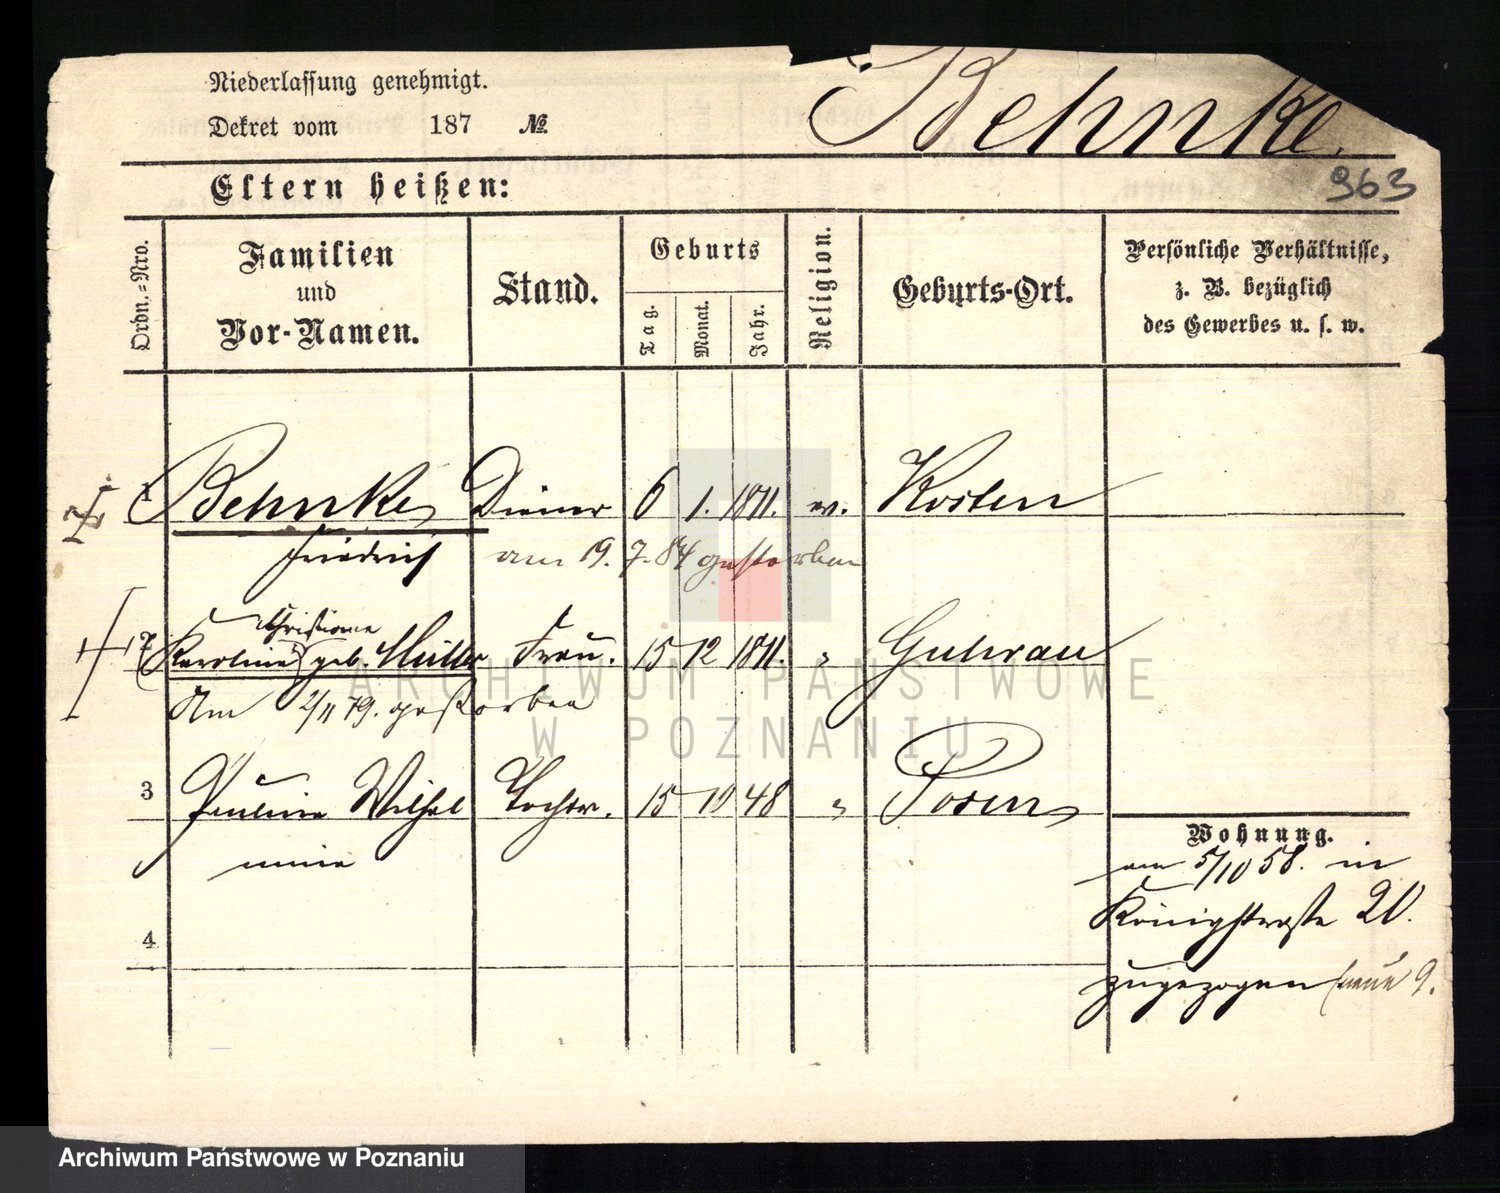 Niederlassung genehmigt.
Behnke.
Dekret vom 187 №
963
Eltern heißen:
Ordn.=Nro.
Familien und Vor-Namen.
Stand.
Geburts
Tag.
Monat.
Jahr.
Religion.
Geburts-Ort.
Persönliche Verhältnisse,
z. B. bezüglich
des Gewerbes u. s. w.
1 Behnke Diener 6 1. 1811. ev. Kosten
Friedrich am 19. 7. 84 gestorben
Christiane
2 Karoline geb. Müller Frau. 15 12 1811. " Guhrau
Am 2/11 79. gestorben
3 Pauline Wilhel Tochter. 15 10 48 " Posen
mine
Wohnung.
am 5/10 58. in
Königstraße 20.
4
zugezogen (neue 9.
ARCHIWUM PAŃSTWOWE
W POZNANIU
Archiwum Państwowe w Poznaniu